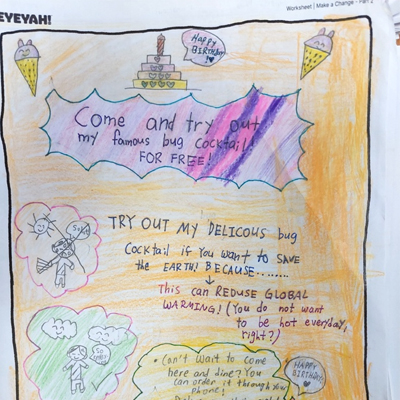 EYEYAH!
Worksheet | Make a Change - Part 2
HAPPY
BIRTHDAY!
Come and try out
my famous bug cocktail!
FOR FREE!
TRY OUT MY DELICOUS bug
Cocktail if you want to SAVE
the EARTH! BECAUSE........
This can REDUSE GLOBAL
WARMING! (You do not want
to be hot everyday,
right?)
Can't wait to come
here and dine? You
can order it through your
phone!
HAPPY
BIRTHDAY!